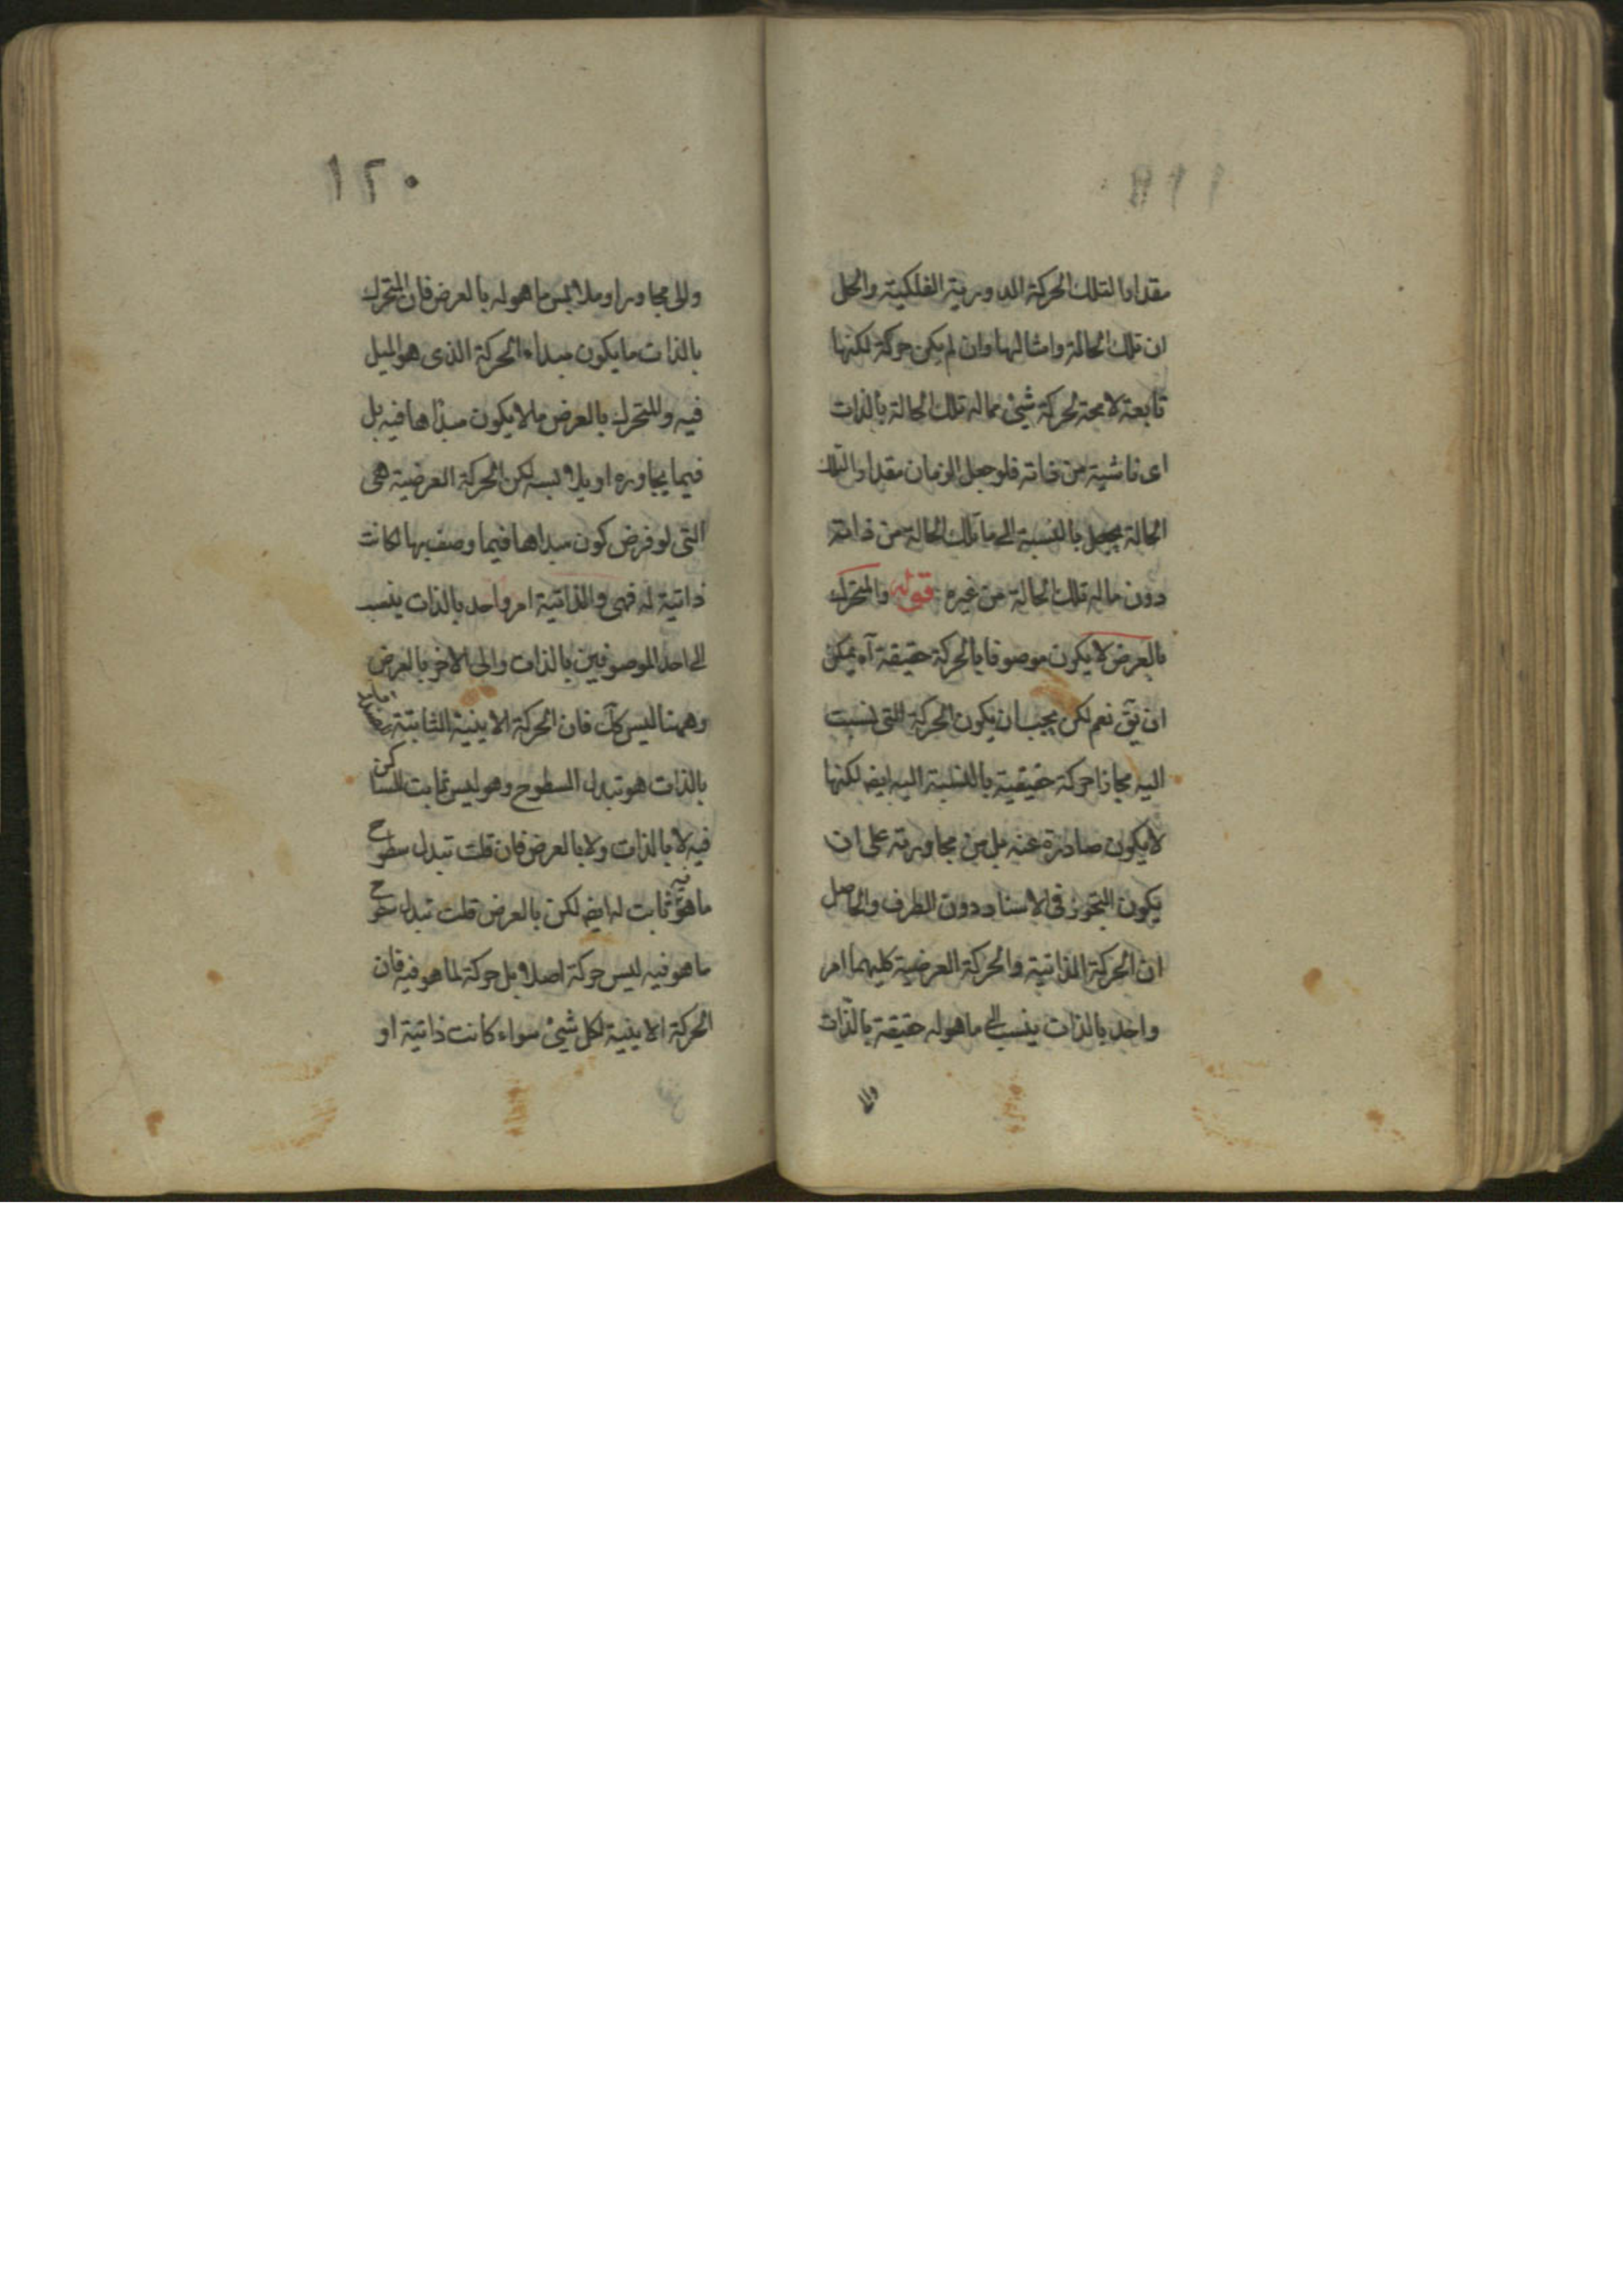 مقدارا لتلك الحركة الدورية الفلكية والحل
ان تلك الحالة وامثالها وان لم يكن حركة لكنها
تابعة لامحة لحركة شئ مماله تلك الحالة بالذات
اى ناشية من ذاته فلو جعل الزمان مقدارا لتلك
الحالة يجعل بالنسبة الى ماتلك الحالة من ذاته
دون ماله تلك الحالة من غيره قوله والمتحرك
بالعرض لا يكون موصوفا بالحركة حقيقة آه يمكن
ان يق نعم لكن يجب ان يكون الحركة التى نسبت
اليه مجازا حركة حقيقية بالنسبة اليه ايضا لكنها
لا يكون صادرة عنه بل من مجاورته على ان
يكون التجوز فى الاسناد دون الطرف والحاصل
ان الحركة الذاتية والحركة العرضية كليهما امر
واحد بالذات ينسب الى ماهوله حقيقة بالذات
والى
١٢٠
والى مجاورا وملابس ماهوله بالعرض فان المتحرك
بالذات ما يكون مبداء الحركة الذى هو الميل
فيه والمتحرك بالعرض مالا يكون مبدأها فيه بل
فيما يجاوره او يلابسه لكن الحركة العرضية هى
التى لو فرض كون مبداها فيما وصف بها لكانت
ذاتية له فهى والذاتية امر واحد بالذات ينسب
الى احد الموصوفين بالذات والى الاخر بالعرض
وههنا ليس كك فان الحركة الاينية الثابتة
بالذات هو تبدل السطوح وهو ليس ثابت للساكن
فيه لا بالذات ولا بالعرض فان قلت تبدل سطوح
ما هو فيه ثابت له ايضا لكن بالعرض قلت تبدل سطوح
ما هو فيه ليس حركة اصلا بل حركة لما هو فيه فان
الحركة الاينية لكل شئ سواء كانت ذاتية او